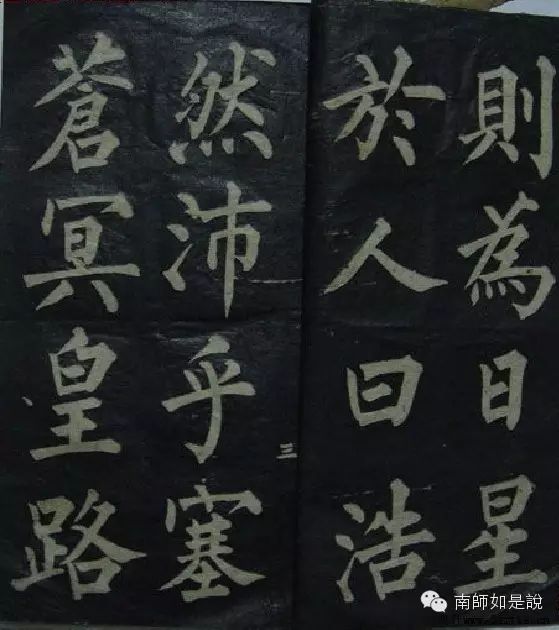 則為日星
於人曰浩
然沛乎塞
蒼冥皇路
三
南師如是說